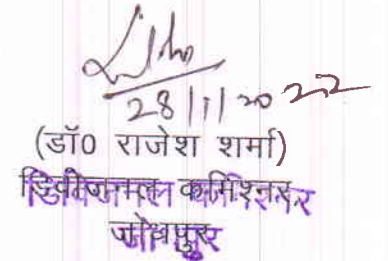 28/1/2022
(डॉ0 राजेश शर्मा)
डिवीजनल कमिश्नर
जोधपुर